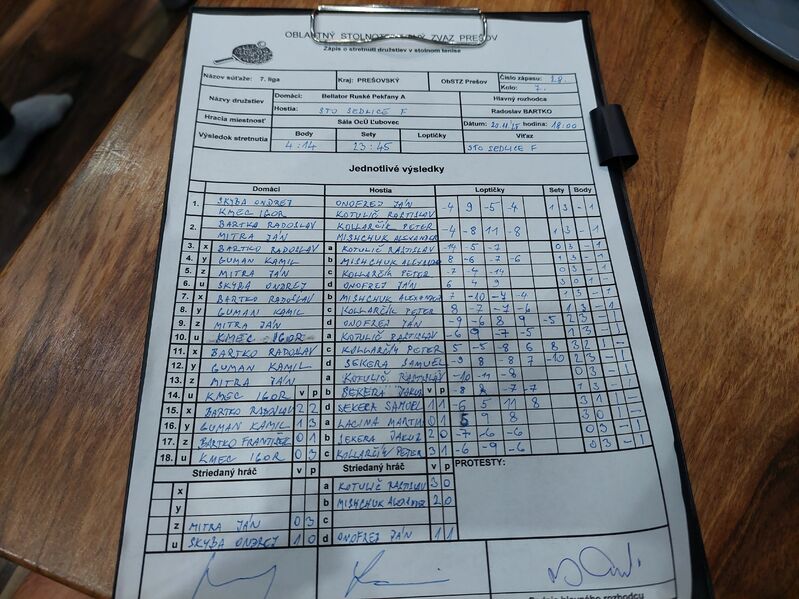 OBLASTNÝ STOLNOTENISOVÝ ZVÄZ PREŠOV
Zápis o stretnutí družstiev v stolnom tenise
Názov súťaže: 7. liga Kraj: PREŠOVSKÝ ObSTZ Prešov Číslo zápasu: 28.
Kolo: 7.
Názvy družstiev Domáci: Bellator Ruské Pekľany A Hlavný rozhodca
Hostia: STO SEDLICE F Radoslav BARTKO
Hracia miestnosť Sála OcÚ Ľubovec Dátum: 20.11.25 hodina: 18:00
Výsledok stretnutia Body Sety Loptičky Víťaz
4:14 23:45 : STO SEDLICE F
Jednotlivé výsledky
Domáci Hostia Loptičky Sety Body
1. SKYBA ONDREJ ONOFREJ JÁN -4 9 -5 -4 1 3 - 1
KMEC IGOR KOTULIČ RASTISLAV
2. BARTKO RADOSLAV KOLLARČÍK PETER -4 -8 11 -8 1 3 - 1
MITRA JÁN MISHCHUK ALEXANDER
3. x BARTKO RADOSLAV a KOTULIČ RASTISLAV -14 -5 -7 0 3 - 1
4. y GUMAN KAMIL b MISHCHUK ALEXANDER 8 -6 -7 -6 1 3 - 1
5. z MITRA JÁN c KOLLARČÍK PETER -7 -4 -14 0 3 - 1
6. u SKYBA ONDREJ d ONOFREJ JÁN 6 4 9 3 0 1 -
7. x BARTKO RADOSLAV b MISHCHUK ALEXANDER 7 -10 -7 -4 1 3 - 1
8. y GUMAN KAMIL c KOLLARČÍK PETER 8 -7 -7 -6 1 3 - 1
9. z MITRA JÁN d ONOFREJ JÁN -9 -6 8 9 -5 2 3 - 1
10. u KMEC IGOR a KOTULIČ RASTISLAV -6 9 -7 -5 1 3 - 1
11. x BARTKO RADOSLAV c KOLLARČÍK PETER -5 -5 8 6 8 3 2 1 -
12. y GUMAN KAMIL d SEKERA SAMUEL -9 8 -8 7 -10 2 3 - 1
13. z MITRA JÁN a KOTULIČ RASTISLAV -10 -11 -8 0 3 - 1
14. u KMEC IGOR v p b SEKERA JAKUB v p -8 8 -7 -7 1 3 - 1
15. x BARTKO RADOSLAV 2 2 d SEKERA SAMUEL 1 1 -6 5 11 8 3 1 1 -
16. y GUMAN KAMIL 1 3 a LACINA MARTIN 0 1 9 8 3 0 1 -
17. z BARTKO FRANTIŠEK 0 1 b SEKERA JAKUB 2 0 -7 -6 -6 0 3 - 1
18. u KMEC IGOR 0 3 c KOLLARČÍK PETER 3 1 -6 -9 -6 0 3 - 1
Striedaný hráč v p Striedaný hráč v p PROTESTY:
x a KOTULIČ RASTISLAV 3 0
y b MISHCHUK ALEXANDER 2 0
z MITRA JÁN 0 3 c
u SKYBA ONDREJ 1 0 d ONOFREJ JÁN 1 1